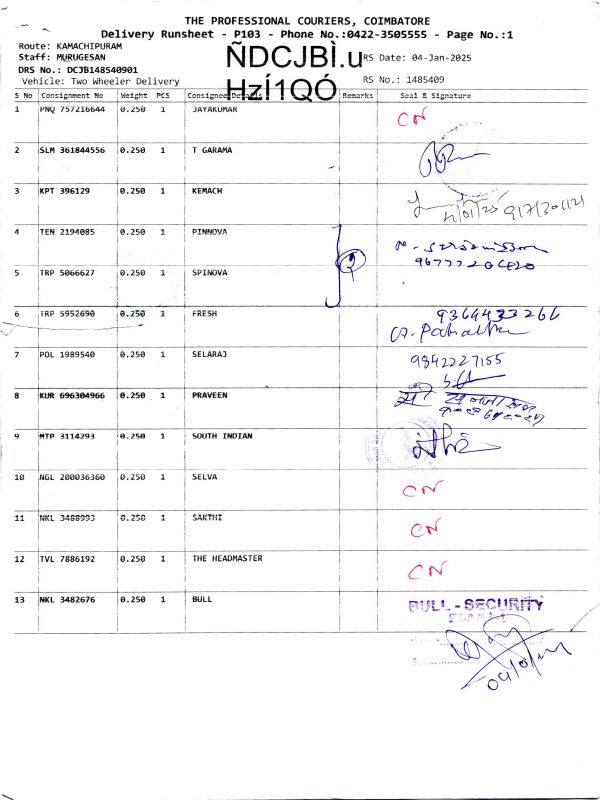 THE PROFESSIONAL COURIERS, COIMBATORE
Delivery Runsheet - P103 - Phone No.:0422-3505555 - Page No.:1
Route: KAMACHIPURAM
Staff: MURUGESAN
DRS No.: DCJB148540901
Vehicle: Two Wheeler Delivery
ÑDCJBÌ.u
HzÍ1QÓ
RS Date: 04-Jan-2025
RS No.: 1485409
S No Consignment No Weight PCS Consignee Details Remarks Seal & Signature
1 PNQ 757216644 0.250 1 JAYAKUMAR CN
2 SLM 361844556 0.250 1 T GARAMA
3 KPT 396129 0.250 1 KEMACH
4 TEN 2194085 0.250 1 PINNOVA
5 TRP 5066627 0.250 1 SPINOVA
6 TRP 5952690 0.250 1 FRESH 9364433266
7 POL 1989540 0.250 1 SELARAJ 9842227155
8 KUR 696304966 0.250 1 PRAVEEN
9 MTP 3114293 0.250 1 SOUTH INDIAN
10 NGL 200036360 0.250 1 SELVA CN
11 NKL 3488993 0.250 1 SAKTHI CN
12 TVL 7886192 0.250 1 THE HEADMASTER CN
13 NKL 3482676 0.250 1 BULL BULL - SECURITY